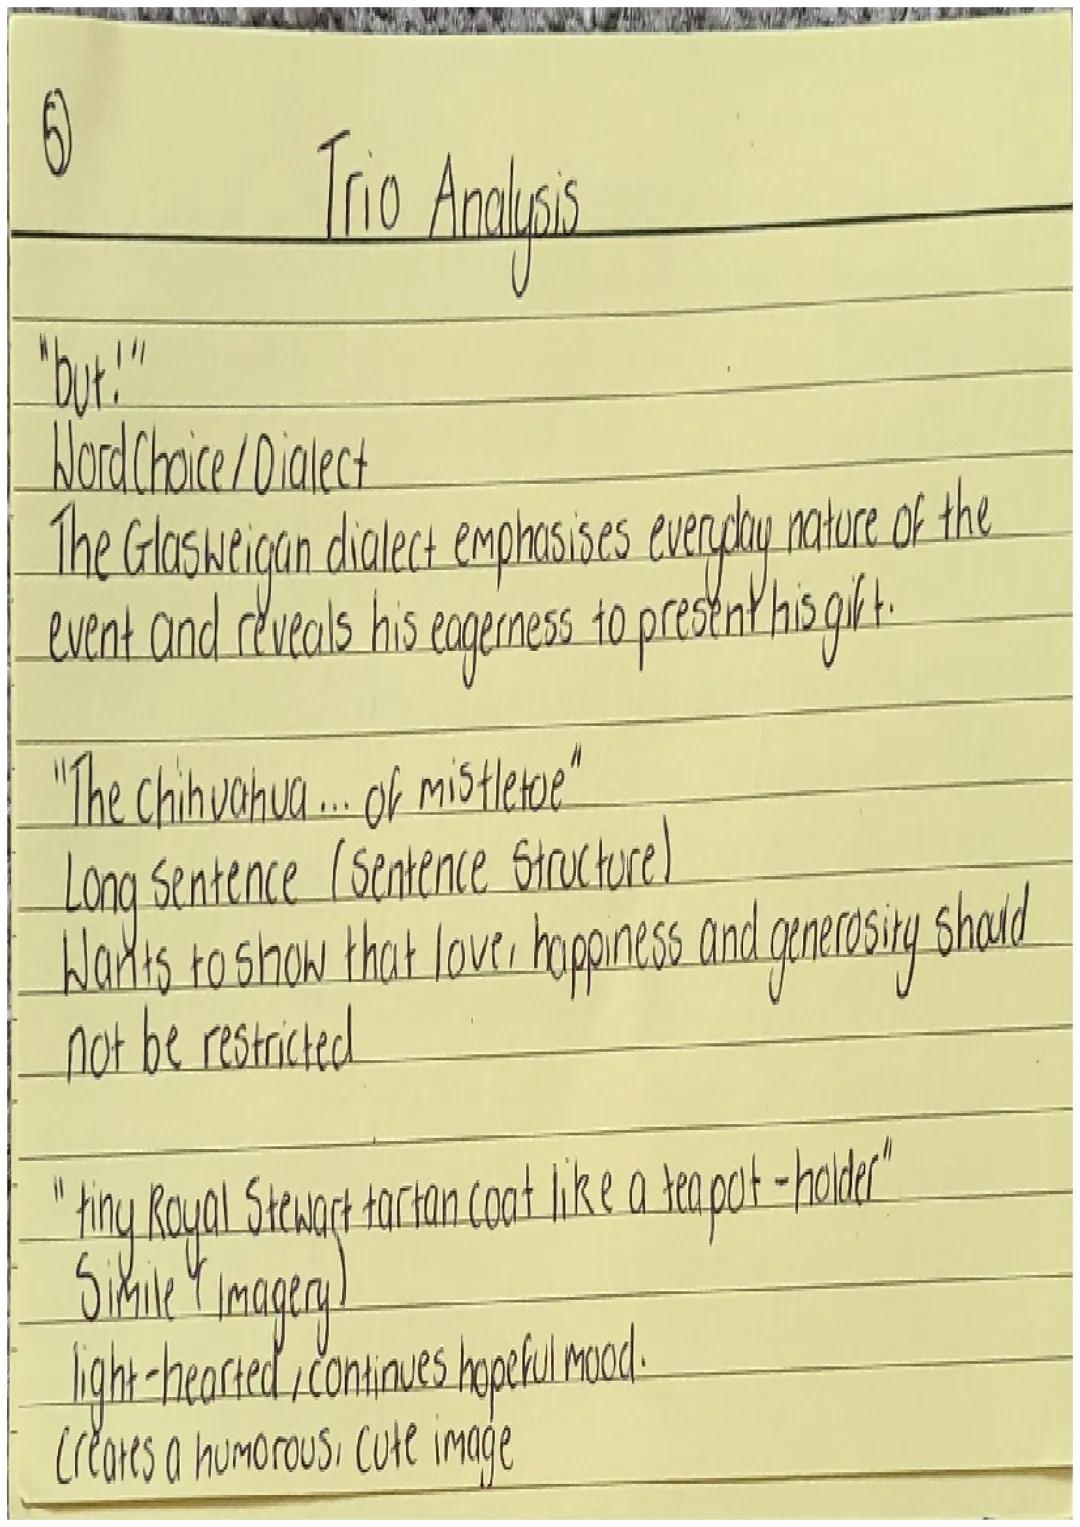 5
Trio Analysis
"but!"
Word Choice/Dialect
The Glasweigan dialect emphasises everyday nature of the
event and reveals his eagerness to present his gift.
"The chihuahua... of mistletoe"
Long sentence (Sentence Structure)
Wants to show that love, happiness and generosity should
not be restricted
"tiny Royal Stewart tartan coat like a teapot-holder"
Simile (Imagery)
light-hearted, continues hopeful mood.
Creates a humorous, cute image